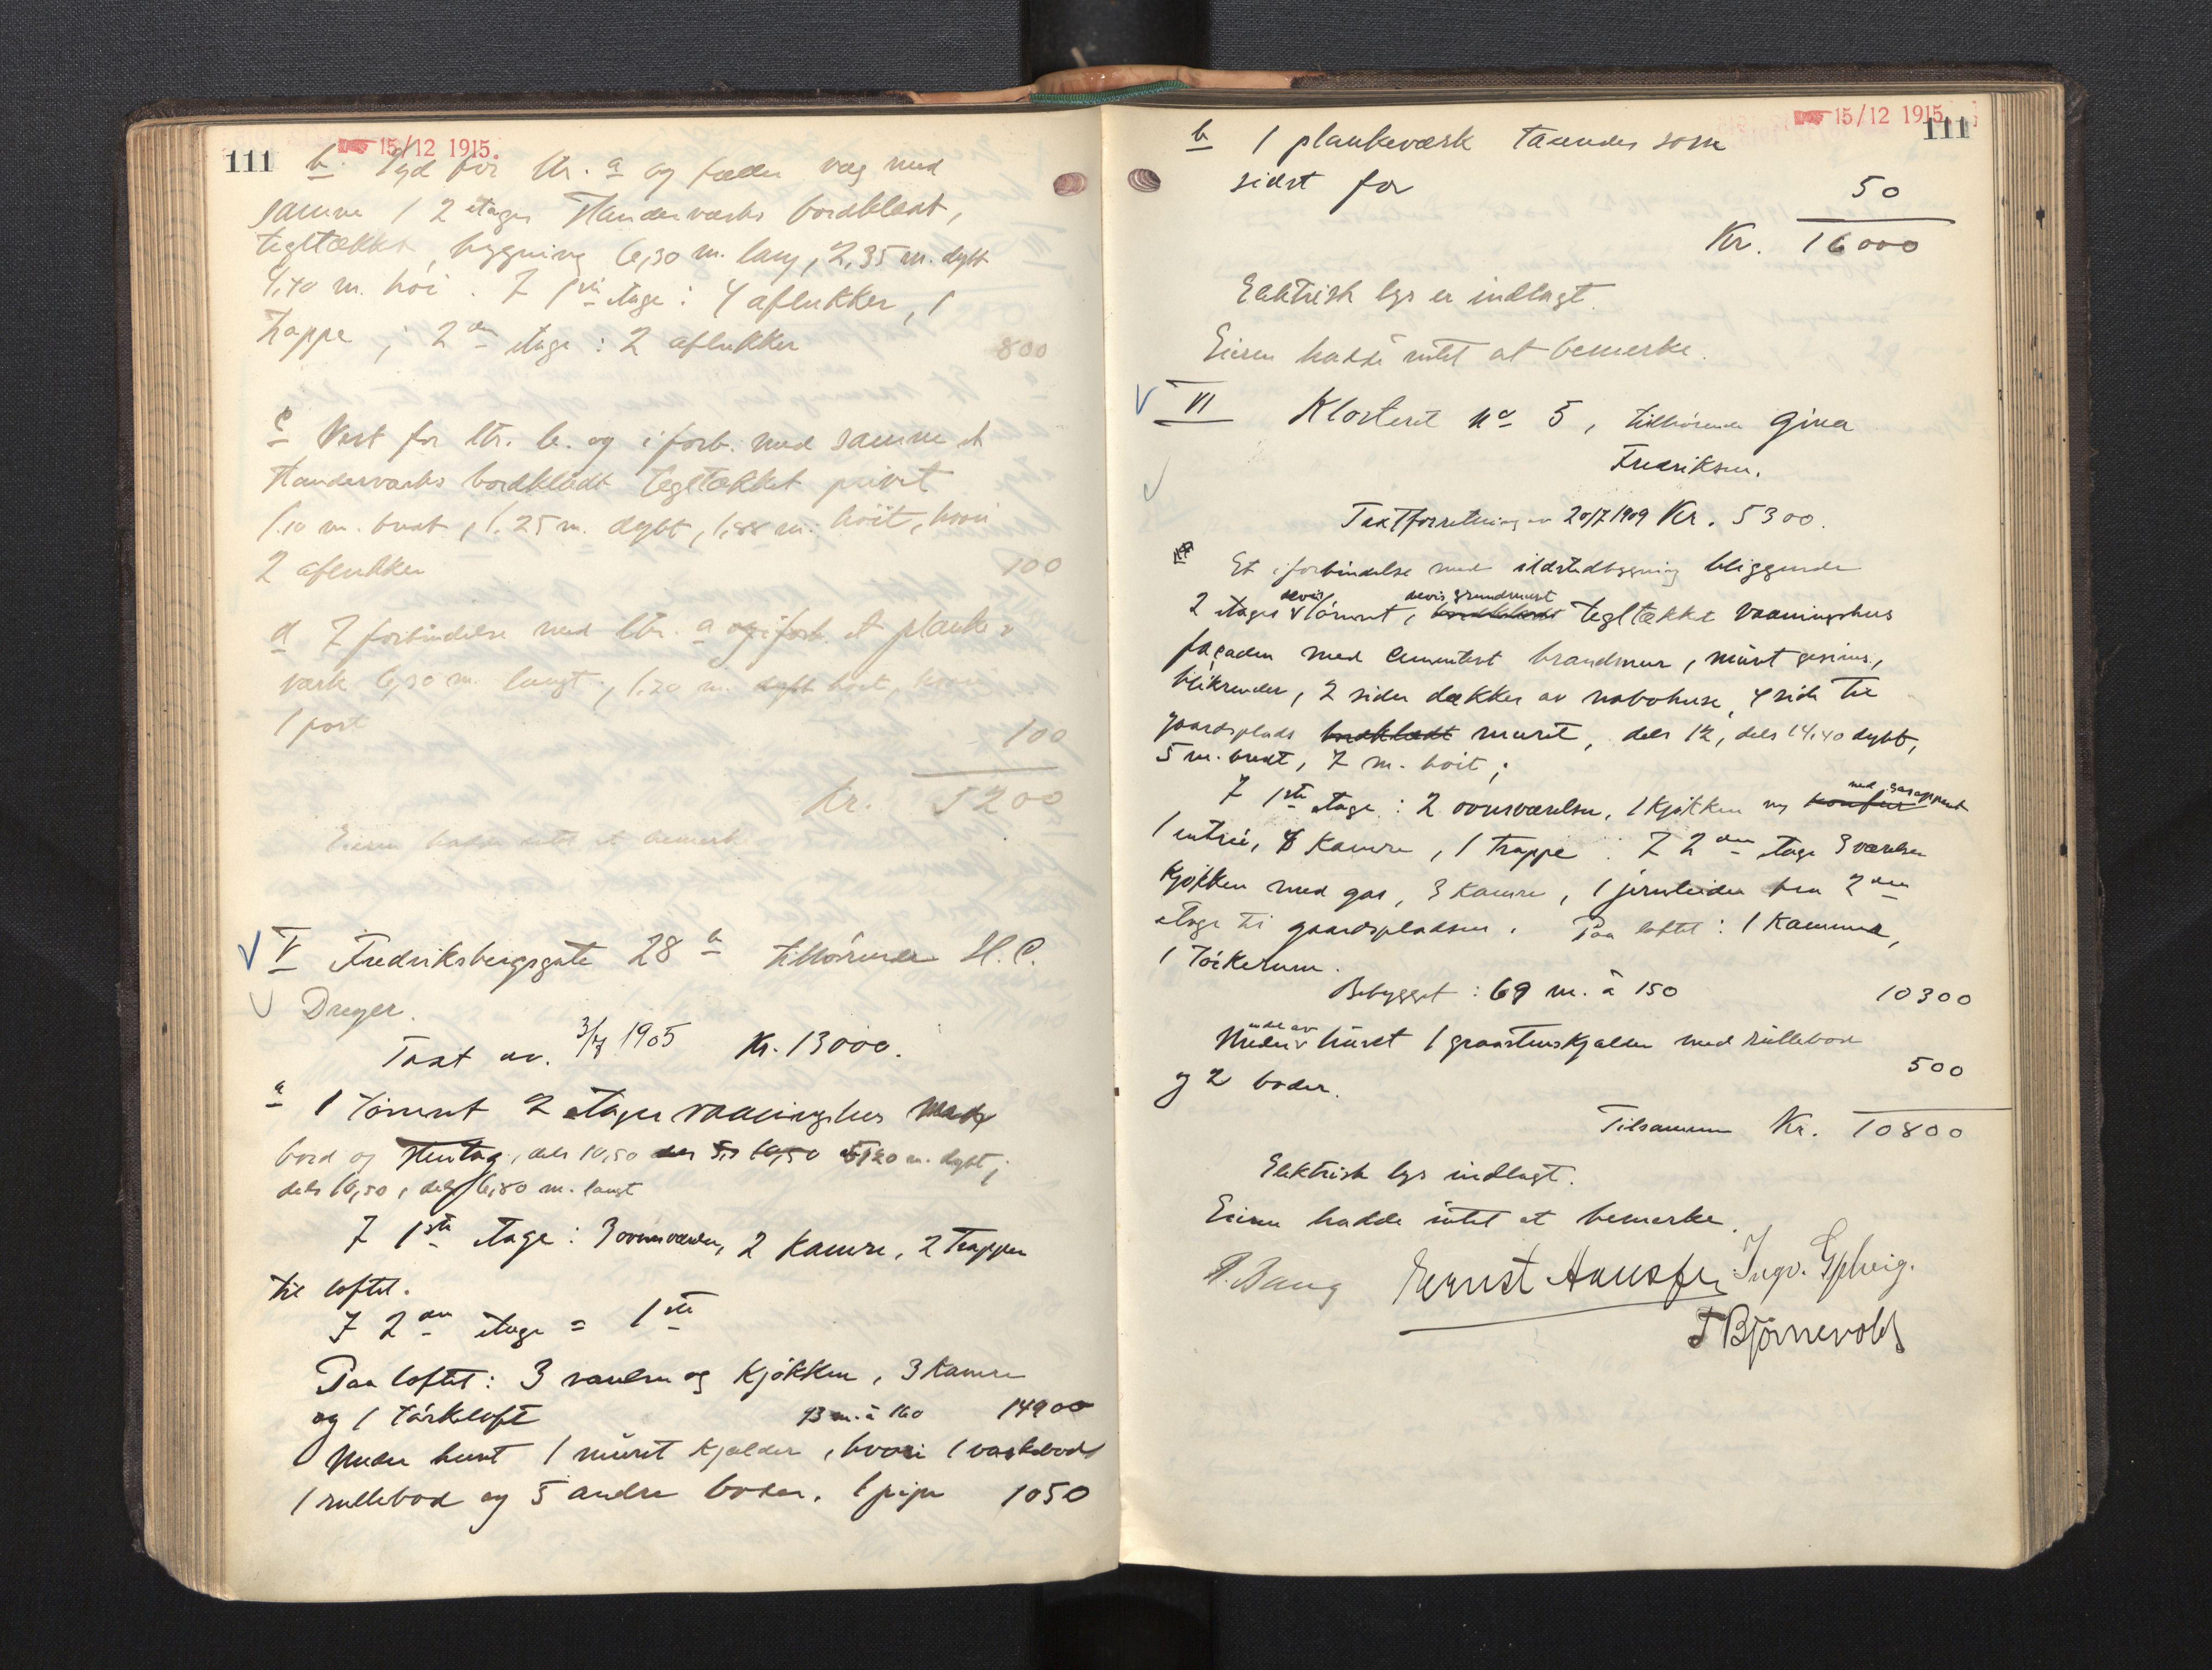 111
15/12 1915.
b. Syd for ltr. a og fælles væg med
samme 1 2 etages Standerværks bordklædt,
tegltækket bygning 6,30 m. lang, 2,35 m. dybt
4,40 m. höi. I 1ste etage: 4 aflukker, 1
trappe; 2den etage: 2 aflukker 800
c Vest for ltr. b. og i forb. med samme et
Standerværks bordklædt tegltækket privet
1.10 m. bredt, 1.25 m. dybt, 1,88 m. höit, hvori
2 aflukker 100
d I forbindelse med ltr. a og i forb. et planke-
værk 6,30 m. langt, 1.20 m. dybt höit, hvori
1 port 100
Kr. 5200
Eieren hadde intet at bemerke
V Fredriksbergsgate 28 b tilhörende H. C.
Dreyer.
Taxt av. 3/7 1905 Kr. 13000.
a 1 tömret 2 etages vaaningshus med
bord og Stentag, dels 10,50 m. dybt;
dels 10,50, dels 6,80 m. langt
I 1ste etage: 3 ovnsværelser, 2 Kamre, 2 Trapper
til loftet.
I 2den etage = 1ste
Paa loftet: 3 værelser og Kjökken, 3 Kamre
og 1 törkeloft 93 m. à 160 14900
Under huset 1 müret Kjælder, hvori 1 vaskebod
1 rullebod og 5 andre boder. 1 pipe 1050
15/12 1915.
111
b 1 plankeværk taxeredes som
sidst for 50
Kr. 16000
Elektrisk lys er indlagt.
Eieren hadde intet at bemerke.
VI Klosteret no 5, tilhörende Gina
Fredriksen.
Taxtforretning av 20/7 1909 Kr. 5300.
Et i forbindelse med ildstedbygning bliggende
delvis delvis grundmuret
2 etages tömret, bordklædt tegltækket vaaningshus
façaden med Cementert brandmur, müret gesims,
blikrender, 2 sider dækkes av nabohuse, 4 side til
gaardsplads bordklædt muret, dels 12, dels 14,40 dybt,
5 m. bredt, 7 m. höit;
med gasapparat
I 1ste etage: 2 ovnsværelser, 1 Kjökken og komfur
1 entrée, 8 Kamre, 1 trappe. I 2den etage 3 værelser
Kjökken med gas, 3 Kamre, 1 jernleider fra 2den
etage til gaardspladsen. Paa loftet: 1 Kammer,
1 Törkerum.
Bebygget: 69 m. à 150 10300
ende av
Under huset 1 graastenskjælder med rüllebod
og 2 boder. 500
Tilsammen Kr. 10800
Elektrisk lys indlagt.
Eieren hadde intet at bemerke.
P. Bang Ernst Hansen Ingv. Gjelvig.
T Björnevold